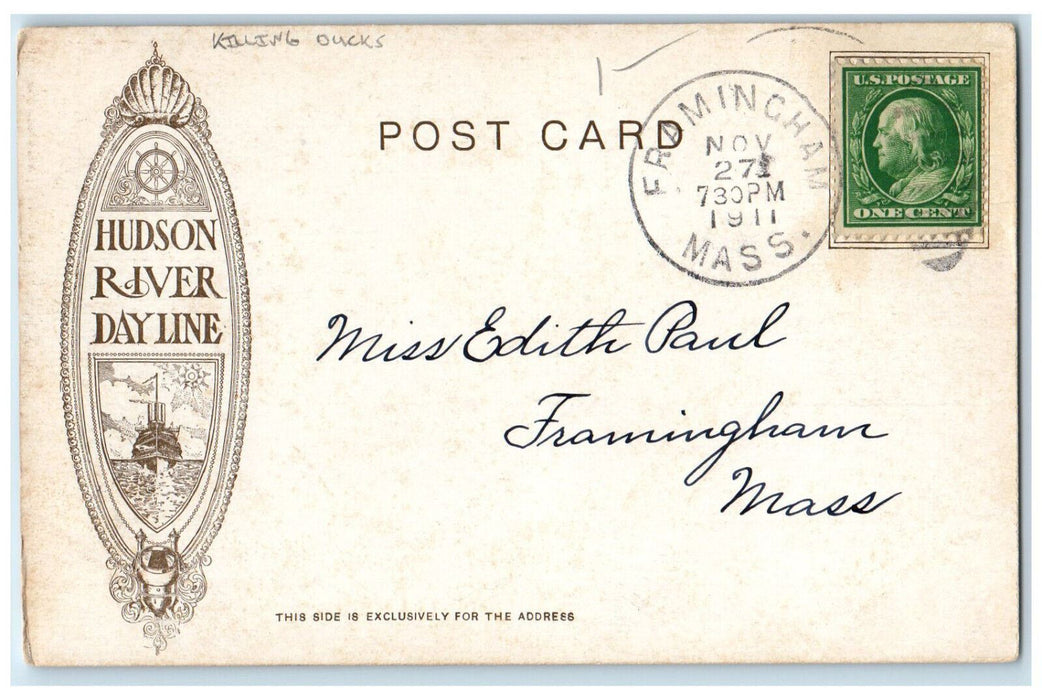 KILLING DUCKS
POST CARD
FRAMINGHAM
NOV
27
730PM
1911
MASS.
U.S.POSTAGE
ONE CENT
HUDSON
RIVER
DAY LINE
Miss Edith Paul
Framingham
Mass
THIS SIDE IS EXCLUSIVELY FOR THE ADDRESS